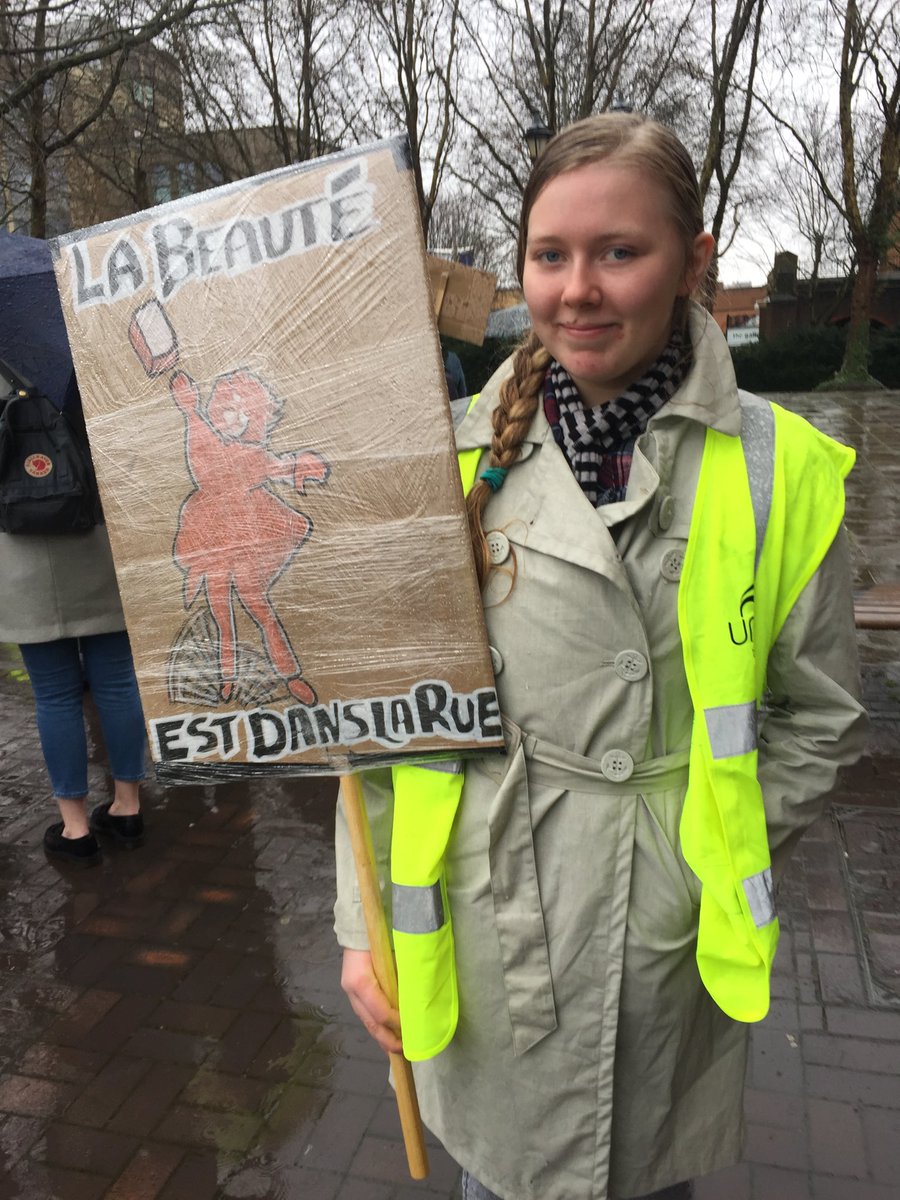 LA BEAUTÉ
EST DANS LA RUE